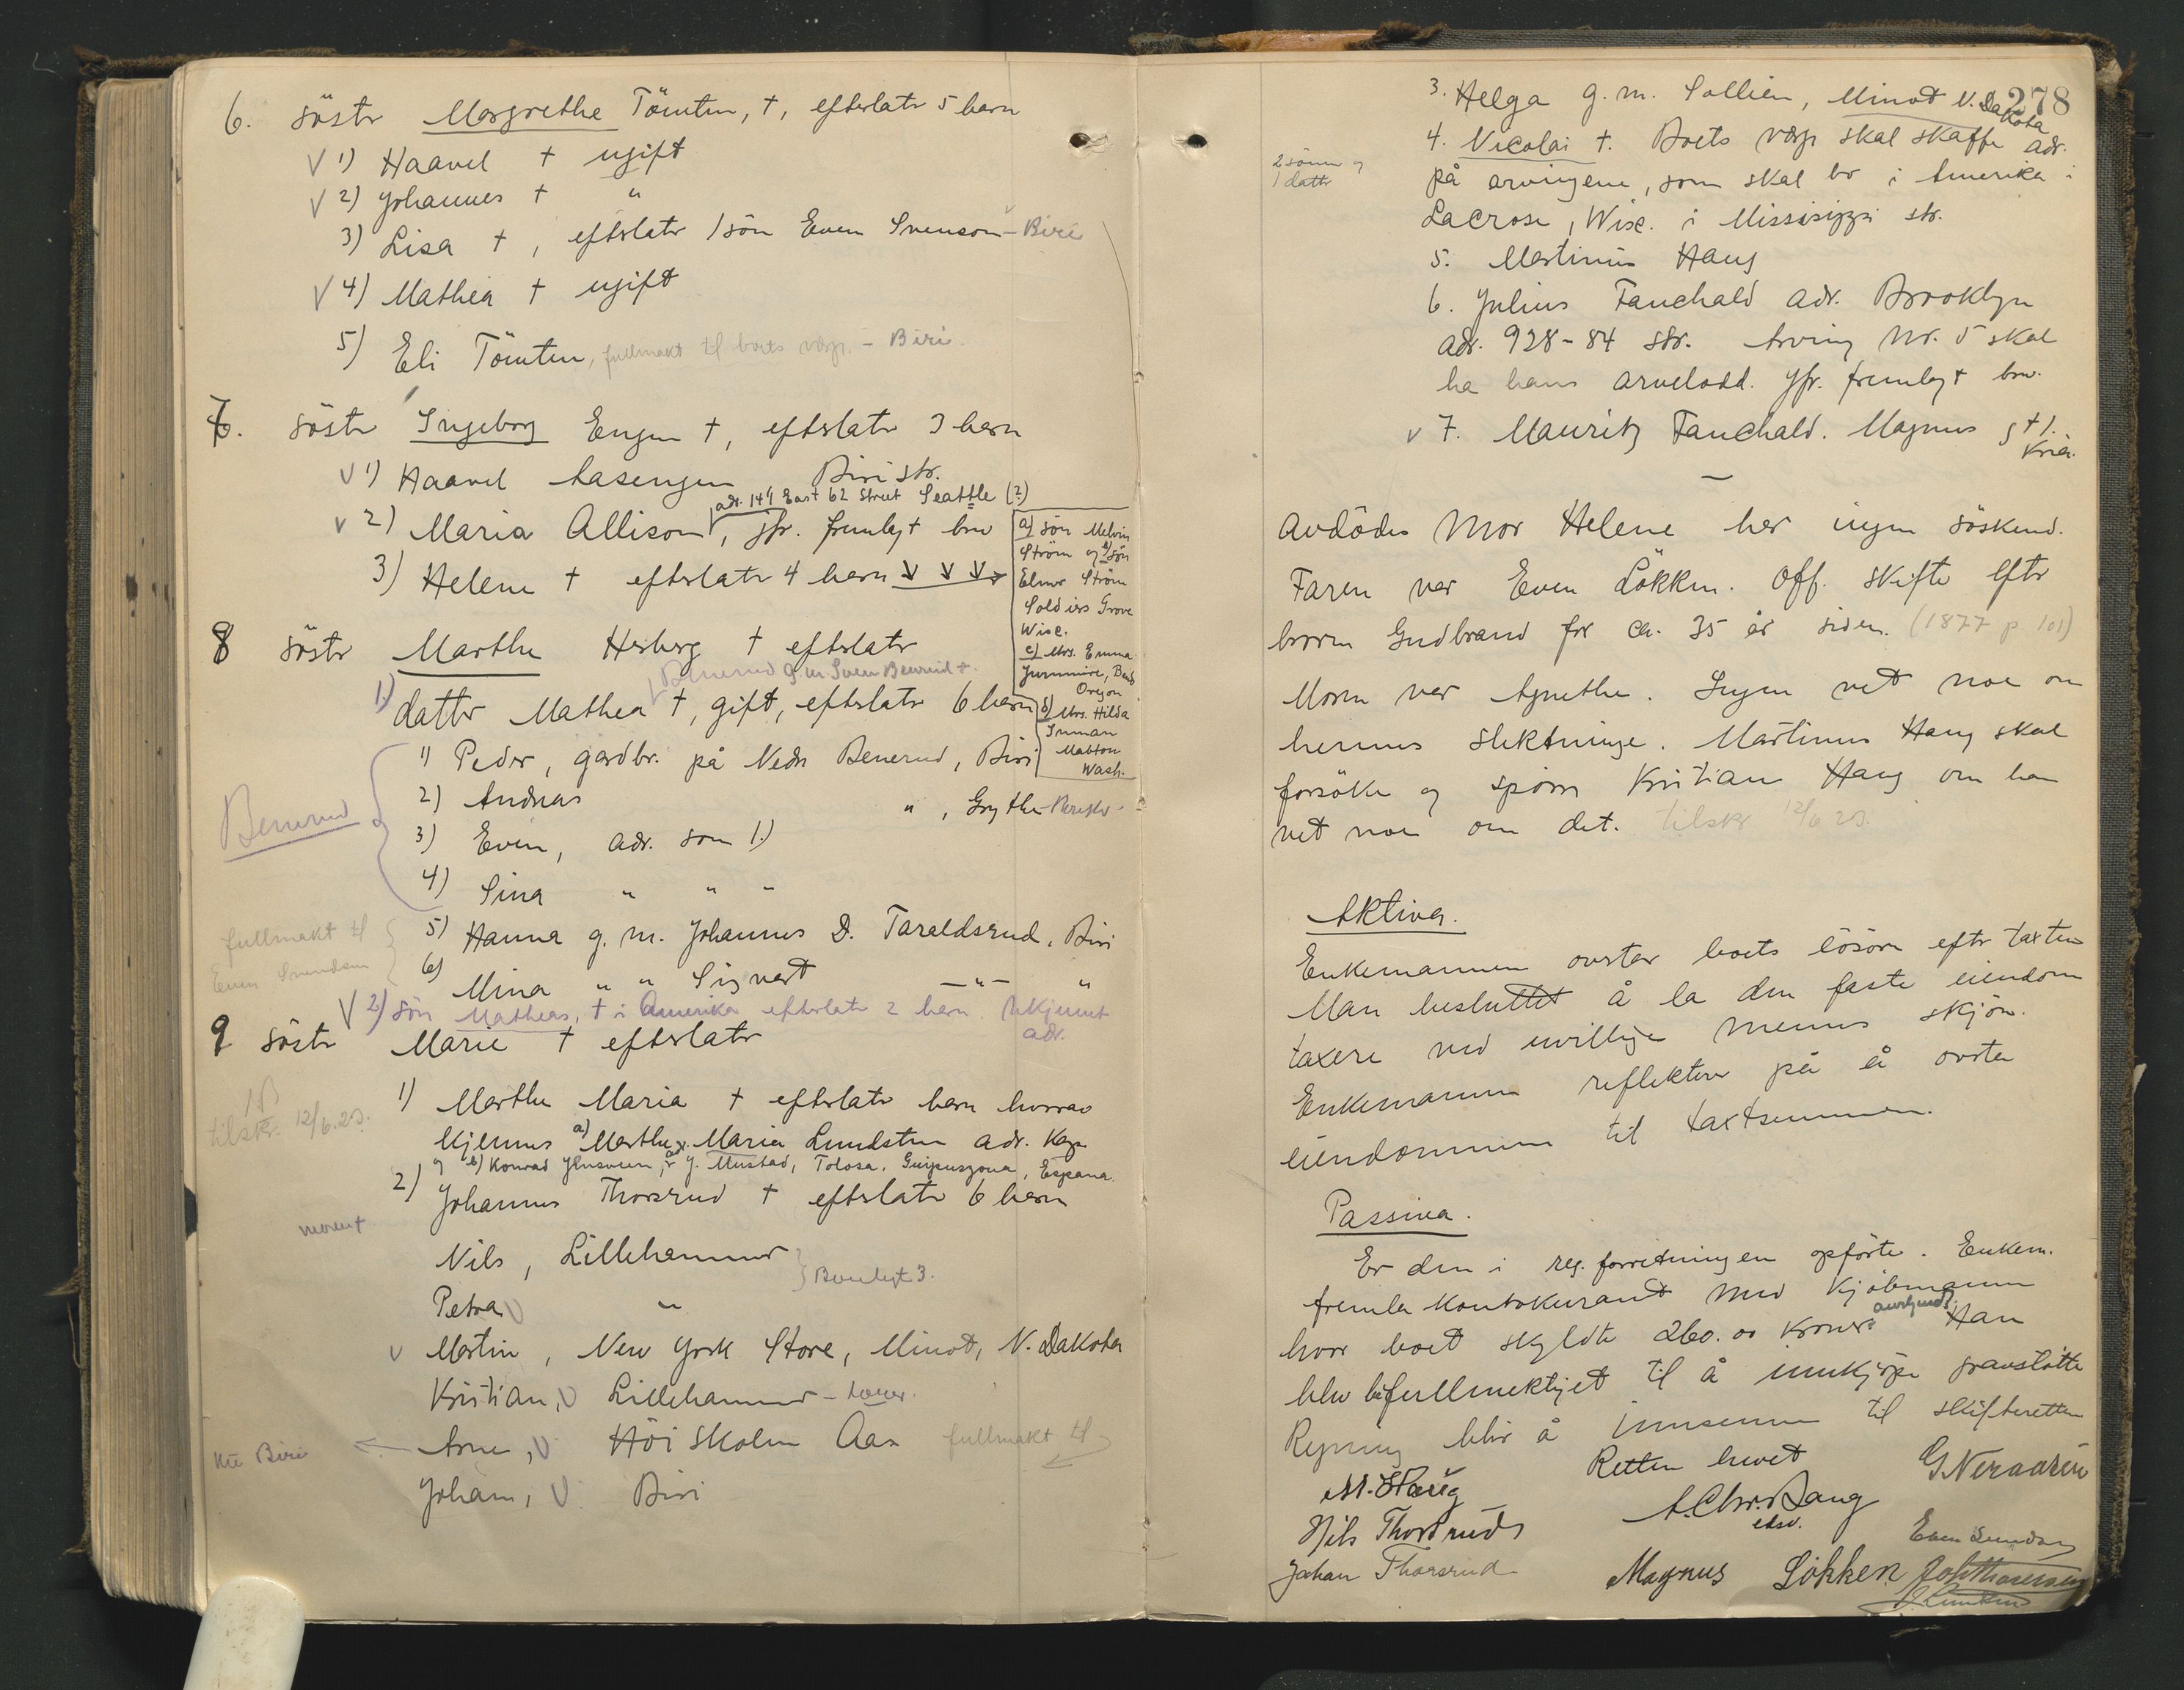 6. söster Margrethe Tömten, †, efterlater 5 barn
V 1) Haavel † ugift
V 2) Johannes † "
3) Lisa †, efterlater 1 sön Even Svenson - Biri
V 4) Mathea † ugift
5) Eli Tömten, fullmakt til boets verge. - Biri.
7. söster Ingeborg Engen †, efterlater 3 barn
V 1) Haavel Aasengen Biri str.
adr. 141 East 62 Street Seattle (?)
V 2) Maria Allison, jfr. fremlagt brev
3) Helene † efterlater 4 barn
a) sön Melvin
Ström og b) sön
Elmer Ström
Soldiers Grove
Wisc.
c) Mrs. Emma
Oregon
d) Mrs. Hilda
Inman
Mabton
Wash.
8 söster Marthe Herberg † efterlater
Benerud g.m. Sven Benerud †.
1) datter Mathea †, gift, efterlater 6 barn
1) Peder, gardbr. på Nedre Benerud, Biri
2) Andreas " , Grythe
3) Even, adr. som 1)
Benerud
4) Sina " " "
5) Hanna g. m. Johannes D. Taraldsrud, Biri
fullmakt til
Even Svendsen
6) Mina " " Sigvart - " - "
V 2) sön Mathias, † i Amerika efterlater 2 barn. Ukjennt
adr.
9 söster Marie † efterlater
1) Marthe Maria † efterlater barn hvorav
tilskr. 12/6.23.
kjennes a) Marthe Maria Lundsten adr. Kap
og b) Konrad Jensveen, adr J. Mustad, Tolosa, Guipuzcoa, Espana.
2) Johannes Thorsrud † efterlater 6 barn
moren †
Nils, Lillehammer
Petra V "
V Martin, New York Store, Minot, N. Dakota
Kristian, V Lillehammer
Arne, V Höiskolen Aas fullmakt til
nu Biri
Johan, V Biri
278
3. Helga g. m. Sollien, Minot N. Dakota
4. Nicolai †. Boets verge skal skaffe adr.
2 sönner og
1 datter
på arvingene, som skal bo i Amerika i
Lacrose, Wisc. i Missisippi str.
5. Martinus Haug
6. Julius Fauchald adr. Brooklyn
adr. 928 - 84 str. Arving nr. 5 skal
ha hans arvelodd. Jfr. fremlagt brev.
V 7. Mauritz Fauchald. Magnus g t 1.
Kria.
Avdödes mor Helene har ingen söskend.
Faren var Even Lökken. Off. skifte efter
broren Gudbrand for ca. 35 år siden. (1877 p 101)
Moren var Agnethe. Ingen vet noe om
hennes slektninge. Martinus Haug skal
forsöke og spörre Kristian Haug om han
vet noe om det. tilskr 12/6 23.
Aktiva.
Enkemannen overtar boets lösöre efter taxten
Man besluttet å la den faste eiendom
taxere ved uvillige menns skjön.
Enkemannen reflekterer på å overta
eiendommen til taxtsummen.
Passiva.
Er den i reg. forretningen opförte. Enkem.
fremla kontokurant med kjöbmann
hvor boet skyldte 260.00 kroner. Han
blev befullmektiget til å innkjöpe gravstötte
Regning blir å innsende til skifteretten
Retten hevet
M. Haug
A. Chr. Bang
edsv.
G Neraasen
Nils Thorsrud
Even Svendsen
Johan Thorsrud
Magnus Lökken